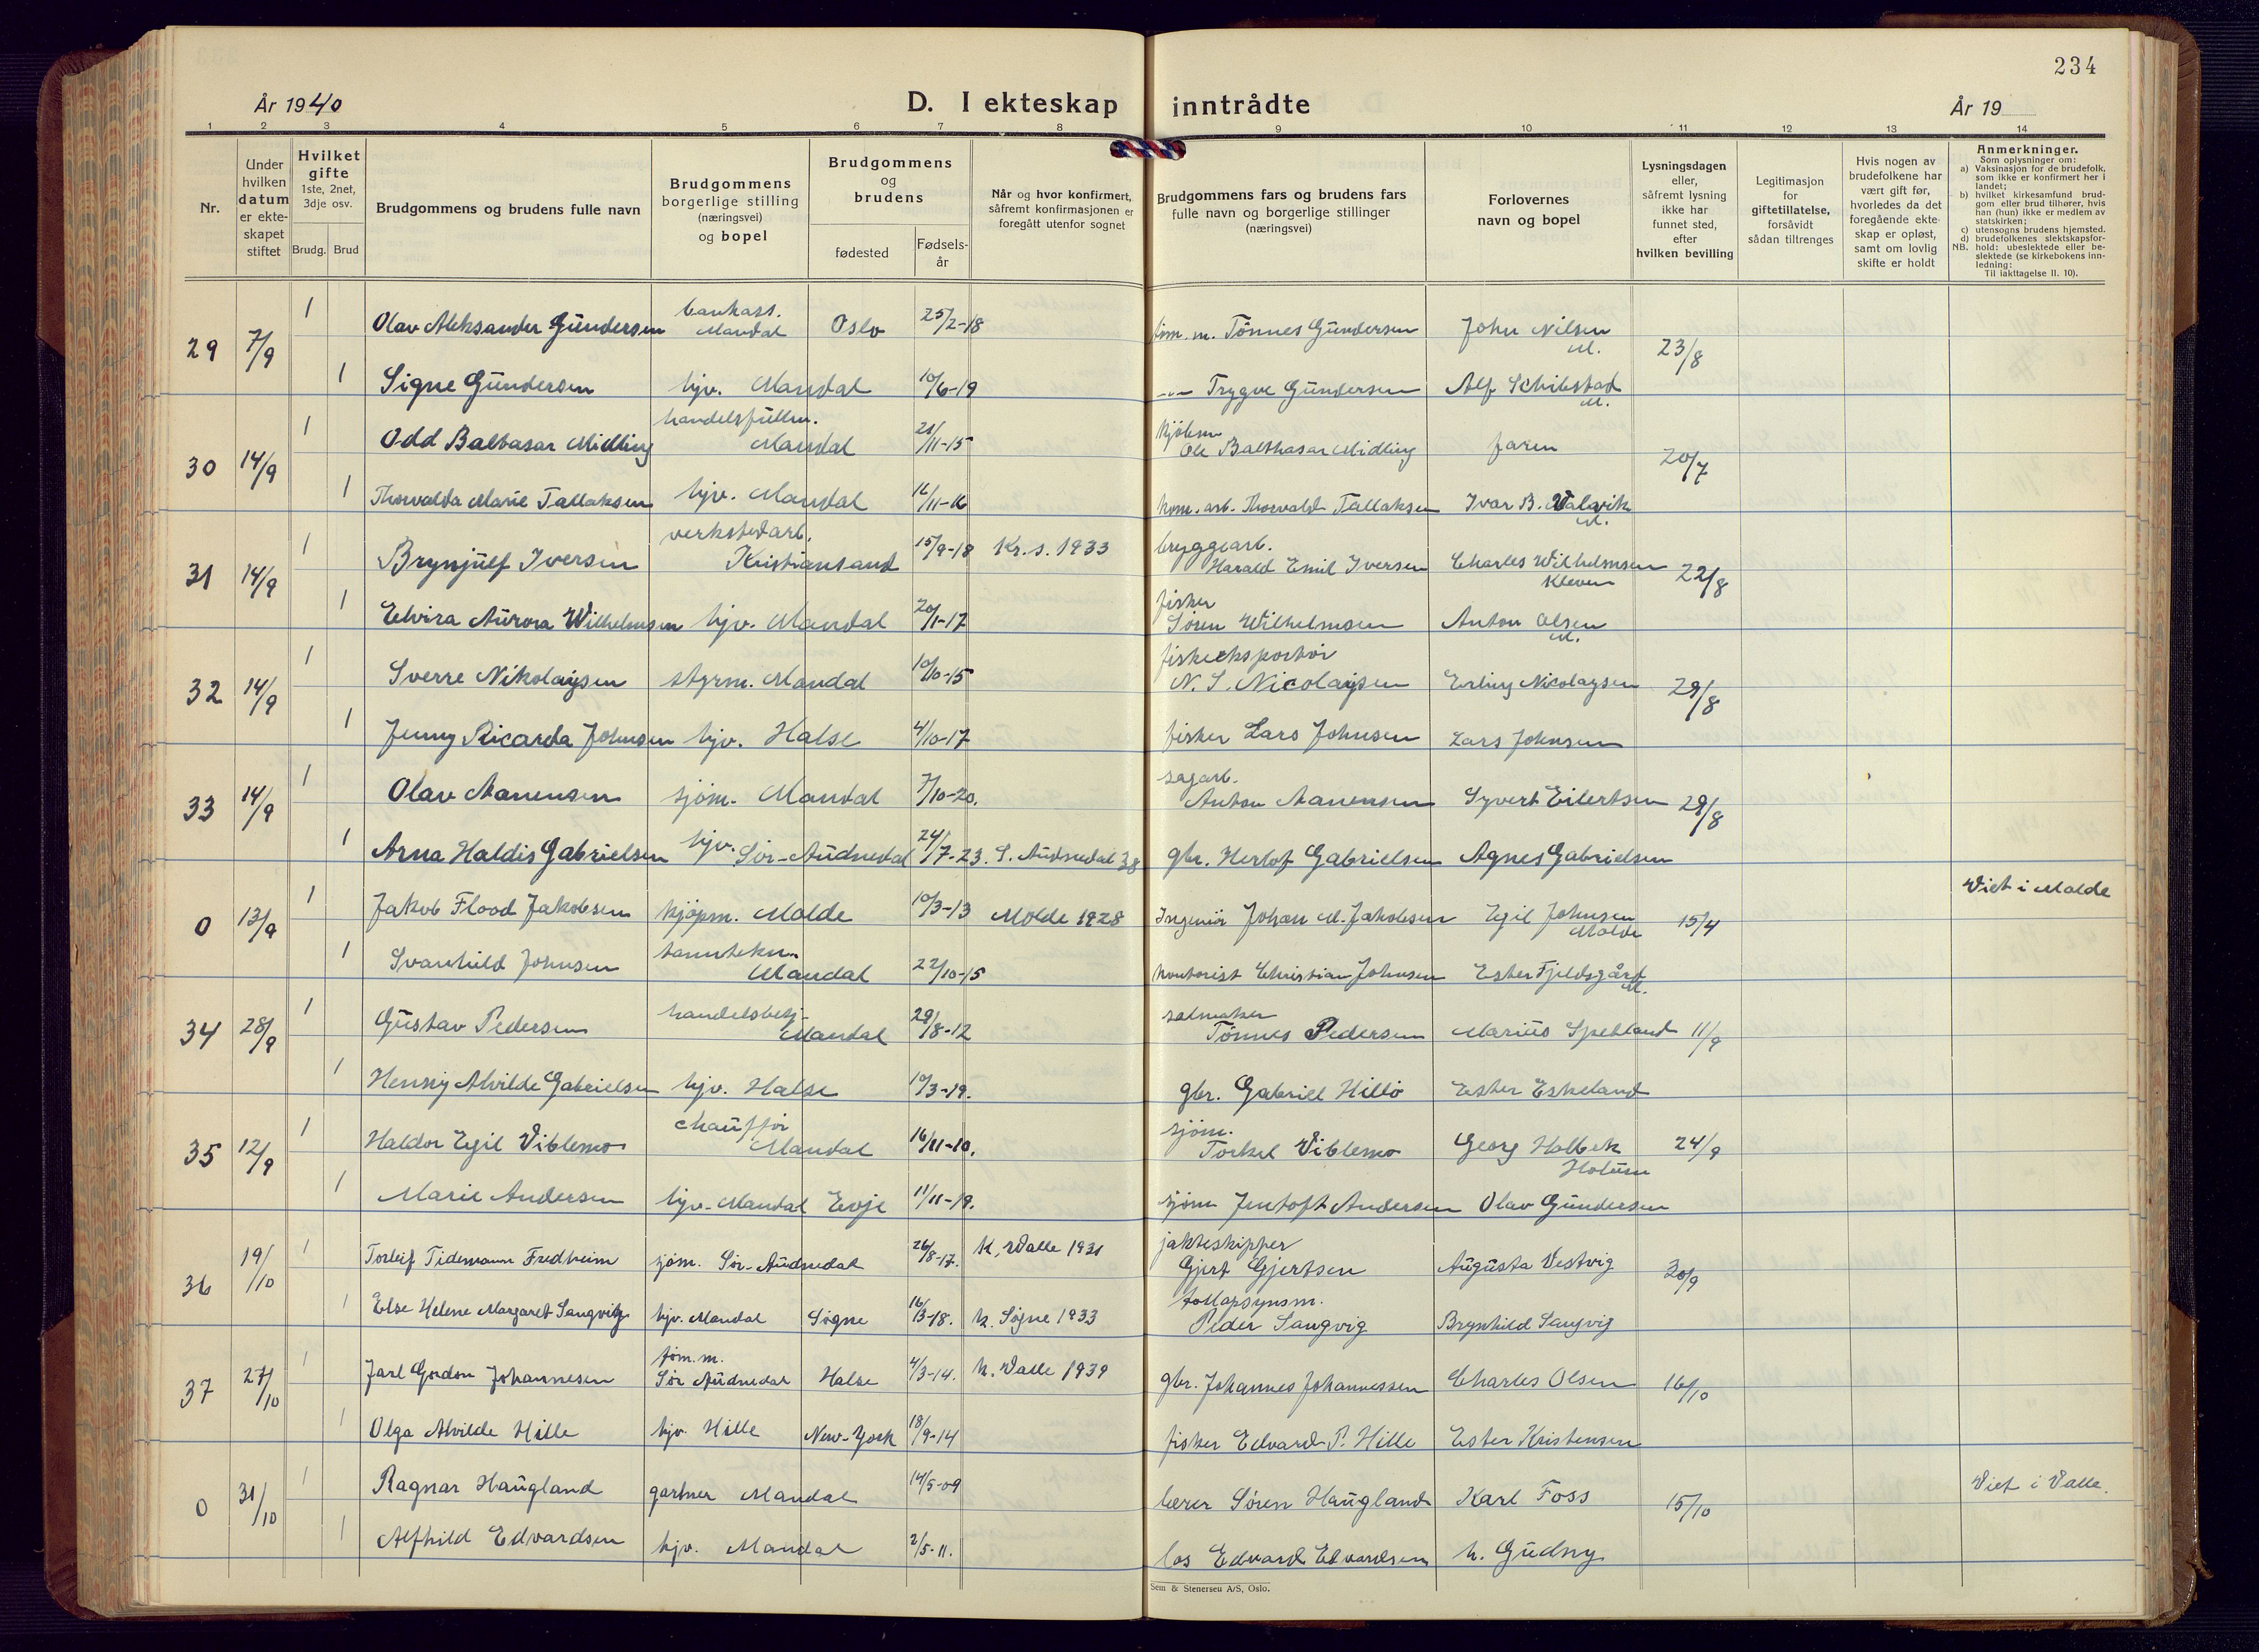 234
År 1940
D. I ekteskap inntrådte
År 19
1 2 3 4 5 6 7 8 9 10 11 12 13 14
Nr.
Under hvilken datum er ekteskapet stiftet
Hvilket gifte
1ste, 2net, 3dje osv.
Brudg. Brud
Brudgommens og brudens fulle navn
Brudgommens borgerlige stilling (næringsvei) og bopel
Brudgommens og brudens
fødested
Fødselsår
Når og hvor konfirmert, såfremt konfirmasjonen er foregått utenfor sognet
Brudgommens fars og brudens fars fulle navn og borgerlige stillinger (næringsvei)
Forlovernes navn og bopel
Lysningsdagen eller, såfremt lysning ikke har funnet sted, efter hvilken bevilling
Legitimasjon for giftetillatelse, forsåvidt sådan tiltrenges
Hvis nogen av brudefolkene har vært gift før, hvorledes da det foregående ekteskap er opløst, samt om lovlig skifte er holdt
Anmerkninger.
Som oplysninger om:
a) Vaksinasjon for de brudefolk, som ikke er konfirmert her i landet;
b) hvilket kirkesamfund brudgom eller brud tilhører, hvis han (hun) ikke er medlem av statskirken;
c) utensogns brudens hjemsted.
d) brudefolkenes slektskapsforhold: ubeslektede eller beslektede (se kirkebokens innledning:
NB. Til iakttagelse II. 10).
29 7/9 1 Olav Aleksander Gundersen bankass. Mandal Oslo 25/2-18 Tönnes Gundersen John Nilsen M. 23/8
1 Signe Gundersen hjv. Mandal 10/6-19 -"- Trygve Gundersen Alf Schibstad M.
30 14/9 1 Odd Baltasar Midling handelsfullm. Mandal 21/11-15 kjöbm Ole Balthasar Midling faren 20/7
1 Thorvalda Marie Tallaksen hjv. Mandal 16/11-16 kom. arb. Thorvald Tallaksen Ivar B. Valvik M.
31 14/9 1 Brynjulf Iversen verkstedarb. Kristiansand 15/9-18 Kr.s. 1933 bryggearb. Harald Emil Iversen Charles Wilhelmsen Kleven 22/8
1 Elvira Aurora Wilhelmsen hjv. Mandal 20/1-17 fisker Sören Wilhelmsen Anton Olsen M.
32 14/9 1 Sverre Nikolaysen styrm. Mandal 10/10-15 fiskeeksportör N. S. Nicolaysen Erling Nicolaysen 29/8
1 Jenny Ricarda Johnsen hjv. Halse 4/10-17 fisker Lars Johnsen Lars Johnsen
33 14/9 1 Olav Aanensen sjöm. Mandal 7/10-20. sagarb. Anton Aanensen Syvert Eilertsen 29/8
1 Arna Haldis Gabrielsen hjv. Sör-Audnedal 24/7-23. S. Audnedal 38 gbr. Herlof Gabrielsen Agnes Gabrielsen
0 13/9 1 Jakob Flood Jakobsen kjöpm. Molde 10/3-13 Molde 1928 Ingeniör Johan M. Jakobsen Egil Johnsen Molde 15/4 Viet i Molde
1 Svanhild Johnsen tanntekn. Mandal 22/10-15 kontorist Christian Johnsen Ester Fjeldsgård M.
34 28/9 1 Gustav Pedersen handelsbetj. Mandal 29/8-12 salmaker Tönnes Pedersen Marius Spetland 11/9
1 Henny Alvilde Gabrielsen hjv. Halse 10/3-19. gbr. Gabriel Hillö Ester Eskeland
35 12/9 1 Haldor Egil Viblemo chaufför Mandal 16/11-10. sjöm. Torkel Viblemo Georg Holbek Holum 24/9
1 Marie Andersen hjv. Mandal Evje 11/11-19. sjöm Jentoft Andersen Olav Gundersen
36 19/10 1 Torleif Tidemann Fredheim sjöm. Sör-Audnedal 26/8-17. k. Valle 1931 jakteskipper Gjert Gjertsen Augusta Vestvig 30/9
1 Else Helene Margaret Sangvig hjv. Mandal Sögne 16/3-18. k. Sögne 1933 tollopsynsm. Peder Sangvig Brynhild Sangvig
37 27/10 1 Jarl Gordon Johannesen töm.m. Sör Audnedal Halse 4/3-14. k. Valle 1939 gbr. Johannes Johannessen Charles Olsen 16/10
1 Olga Alvilde Hille hjv. Hille New-York 18/9-14 fisker Edvard P. Hille Ester Kristensen
0 31/10 1 Ragnar Haugland gartner Mandal 14/5-09 lærer Sören Haugland Karl Foss 15/10 Viet i Valle.
1 Alfhild Edvardsen hjv. Mandal 2/5-11. los Edvard Edvardsen h. Gudny
Sem & Stenersen A/S, Oslo.